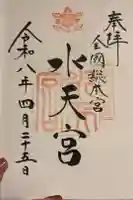 奉拝
全國総本宮
水天宮
令和八年四月二十五日